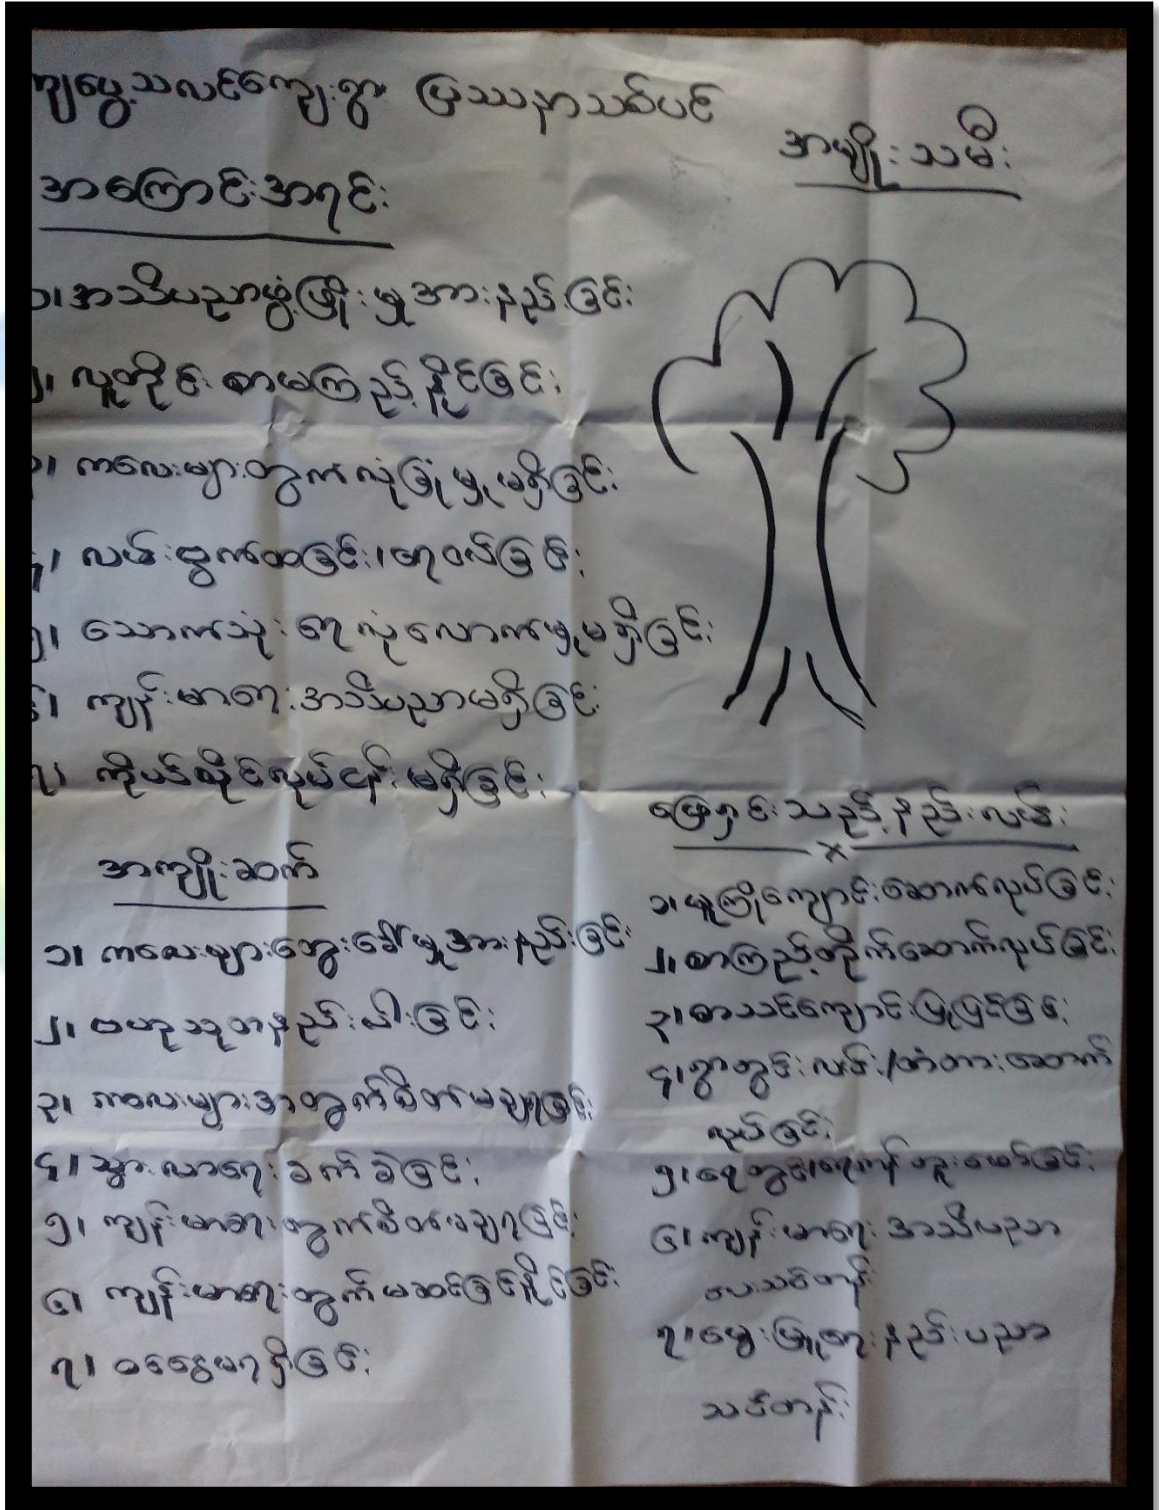 ကျပွေ့သလင်ကျေးရွာ ပြဿနာသစ်ပင်
အမျိုးသမီး
အကြောင်းအရင်း
၁၊ အသိပညာဖွံ့ဖြိုးမှုအားနည်းခြင်း
၂၊ လူတိုင်းစာမကြည့်နိုင်ခြင်း
၃၊ ကလေးများတွက်လုံခြုံမှုမရှိခြင်း
၄၊ လမ်းထွက်ထခြင်း၊ ရေဝပ်ခြင်း
၅၊ သောက်သုံးရေလုံလောက်မှုမရှိခြင်း
၆၊ ကျန်းမာရေးအသိပညာမရှိခြင်း
၇၊ ကိုယ်ပိုင်လုပ်ငန်းမရှိခြင်း
အကျိုးဆက်
၁၊ ကလေးများတွေးခေါ်မှုအားနည်းခြင်း
၂၊ ဗဟုသုတနည်းပါးခြင်း
၃၊ ကလေးများအတွက်စိတ်မချရခြင်း
၄၊ သွားလာရေးခက်ခဲခြင်း
၅၊ ကျန်းမာရေးတွက်စိတ်မချရခြင်း
၆၊ ကျန်းမာရေးတွက်မဆင်ခြင်နိုင်ခြင်း
၇၊ ဝင်ငွေမရရှိခြင်း
ဖြေရှင်းသည့်နည်းလမ်း
၁၊ မူကြိုကျောင်းဆောက်လုပ်ခြင်း
၂၊ စာကြည့်တိုက်ဆောက်လုပ်ခြင်း
၃၊ စာသင်ကျောင်းပြုပြင်ခြင်း
၄၊ ရွာတွင်းလမ်း/တံတားဆောက်
လုပ်ခြင်း
၅၊ ရေတွင်း၊ရေကန်တူးဖော်ခြင်း
၆၊ ကျန်းမာရေးအသိပညာ
ပေးသင်တန်း
၇၊ မွေးမြူရေးနည်းပညာ
သင်တန်း